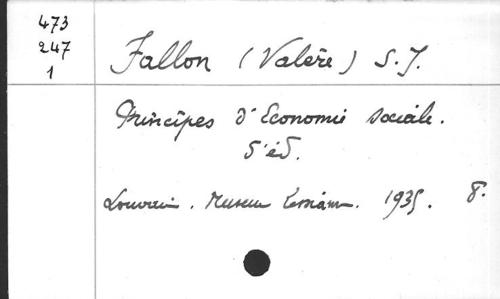 473
247
1
Fallon (Valère) S.J.
Principes d'Economie sociale.
5e éd.
Louvain. Museum Lessianum. 1935. 8.